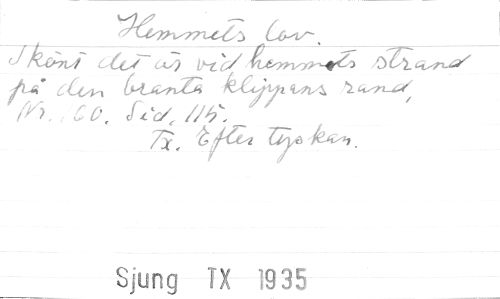 Hemmets lov.
Skönt det är vid hemmets strand
på den branta klippans rand,
Nr. 160. Sid. 115.
Tx. Efter tyskan.
Sjung TX 1935